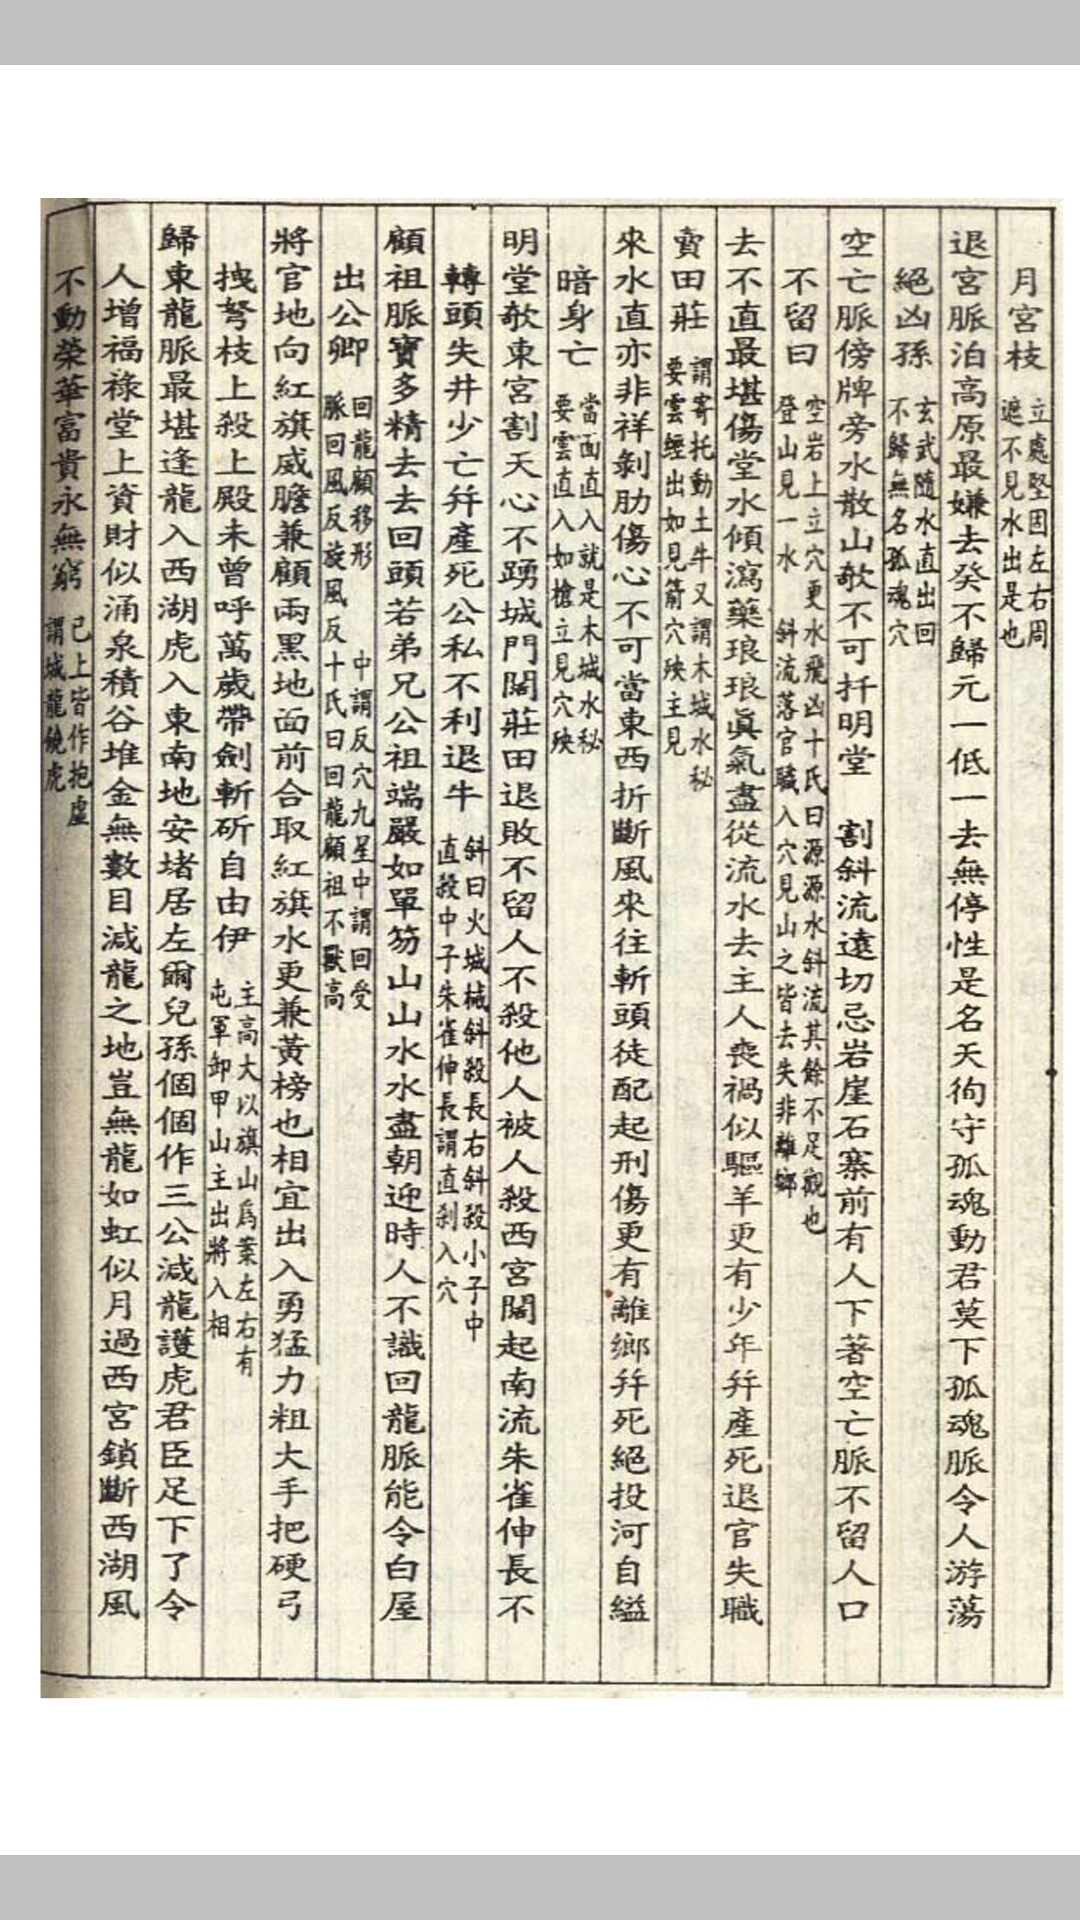 月宮枝 立處堅固左右周 遮不見水出是也
退宮脈泊高原最嫌去癸不歸元一低一去無停性是名天徇守孤魂動君莫下孤魂脈令人游蕩
絕凶孫 玄武隨水直出回 不歸無名孤魂穴
空亡脈傍牌旁水散山欹不可扦明堂 割斜流遠切忌岩崖石寨前有人下著空亡脈不留人口
不留曰 空岩上立穴更水飛凶十氏曰源源水斜流其餘不足觀也 登山見一水 斜流落官驖入穴見山之皆去失非離鄉
去不直最堪傷堂水傾瀉藥琅琅真氣盡從流水去主人喪禍似驅羊更有少年幷產死退官失職
賣田莊 謂寄托動土牛又謂木城水秘 要雲經出如見箭穴殃主見
來水直亦非祥剝肋傷心不可當東西折斷風來往斬頭徒配起刑傷更有離鄉幷死絕投河自縊
暗身亡 當面直入就是木城水秘 要雲直入如槍立見穴殃
明堂欹東宮割天心不踴城門闊莊田退敗不留人不殺他人被人殺西宮闊起南流朱雀伸長不
轉頭失井少亡幷產死公私不利退牛 斜曰火城械斜殺長右斜殺小子中 直殺中子朱雀伸長謂直剎入穴
顧祖脈寶多精去去回頭若弟兄公祖端嚴如單笏山山水水盡朝迎時人不識回龍脈能令白屋
出公卿 回龍顧移形 中謂反穴九星中謂回受 脈回風反旋風反十氏曰回龍顧祖不厭高
將官地向紅旗威膽兼顧兩黑地面前合取紅旗水更兼黃榜也相宜出入勇猛力粗大手把硬弓
拽弩枝上殺上殿未曾呼萬歲帶劍斬斫自由伊 主高大以旗山為業左右有 屯軍卸甲山主出將入相
歸東龍脈最堪逢龍入西湖虎入東南地安堵居左爾兒孫個個作三公減龍護虎君臣足下了令
人增福祿堂上資財似涌泉積谷堆金無數目減龍之地豈無龍如虹似月過西宮鎖斷西湖風
不動榮華富貴永無窮 已上皆作抱虛 謂城龍饒虎